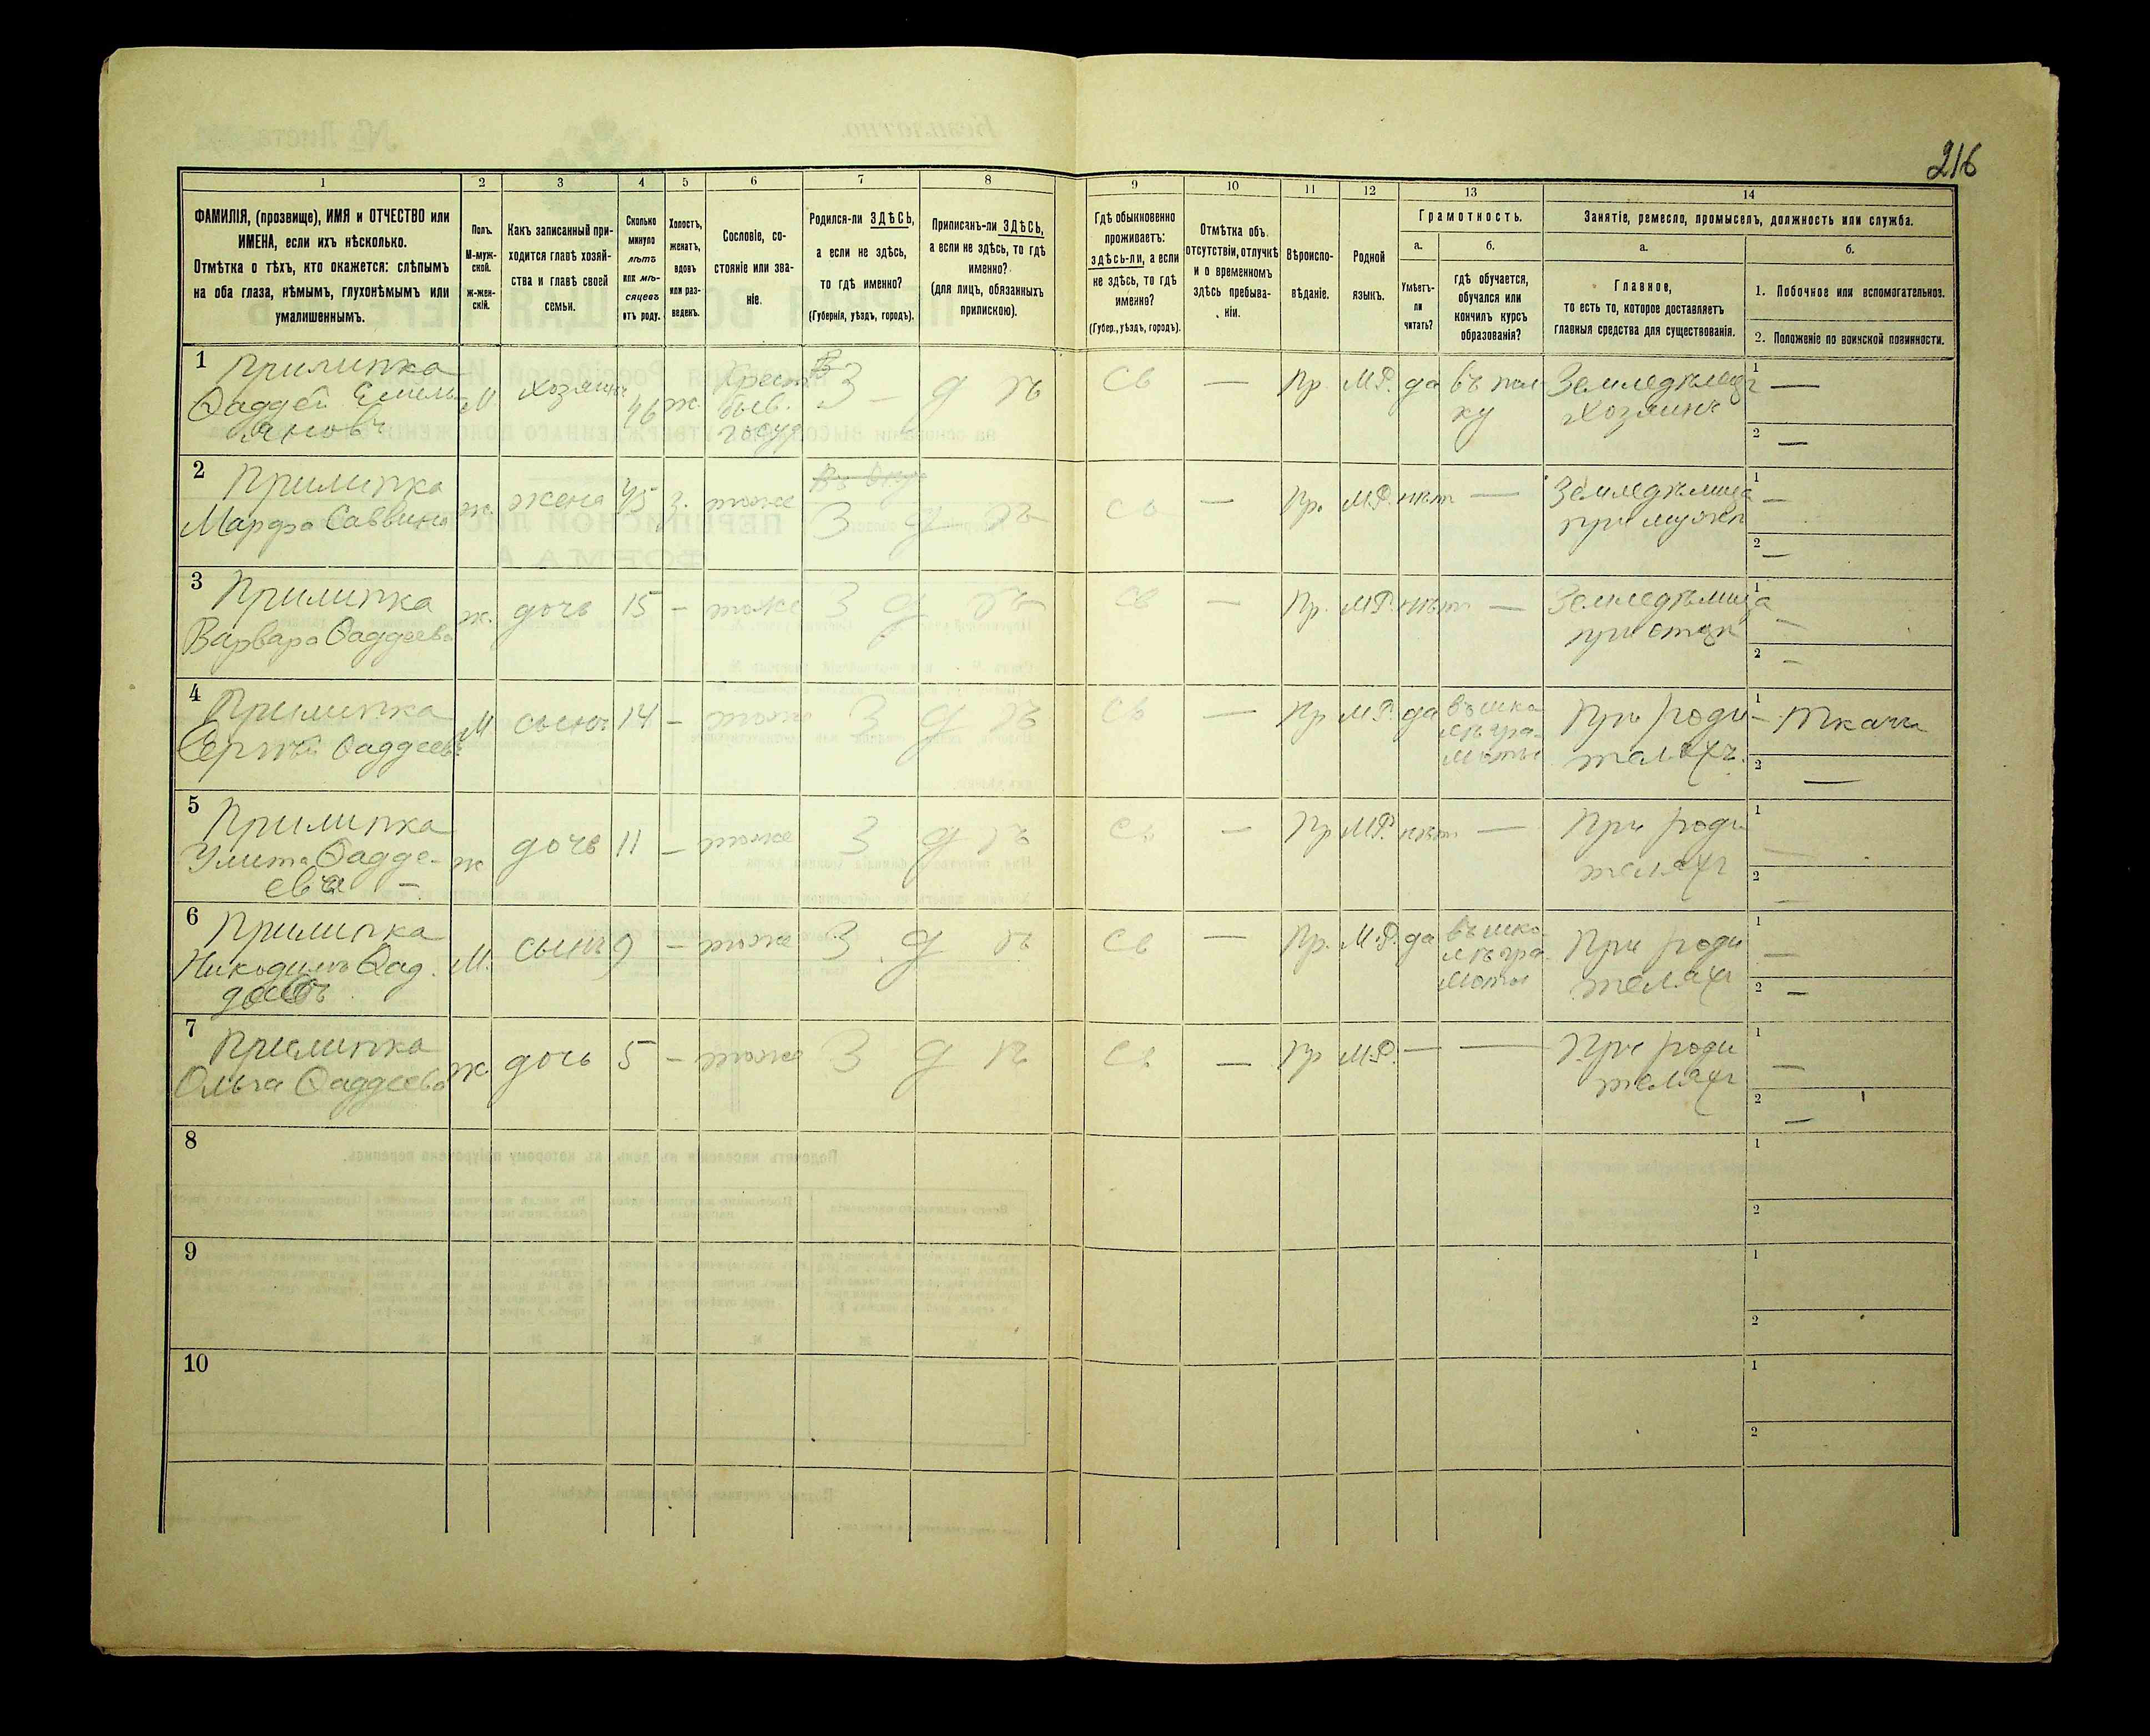 216
1 2 3 4 5 6 7 8 9 10 11 12 13 14
ФАМИЛІЯ, (прозвище), ИМЯ и ОТЧЕСТВО или
ИМЕНА, если ихъ нѣсколько.
Отмѣтка о тѣхъ, кто окажется: слѣпымъ
на оба глаза, нѣмымъ, глухонѣмымъ или
умалишеннымъ.
Полъ.
М-муж-
ской.
Ж-жен-
скій.
Какъ записанный при-
ходится главѣ хозяй-
ства и главѣ своей
семьи.
Сколько
минуло
лѣтъ
или мѣ-
сяцевъ
отъ роду.
Холостъ,
женатъ,
вдовъ
или раз-
веденъ.
Сословіе, со-
стояніе или зва-
ніе.
Родился-ли ЗДѢСЬ,
а если не здѣсь,
то гдѣ именно?
(Губернія, уѣздъ, городъ).
Приписанъ-ли ЗДѢСЬ,
а если не здѣсь, то гдѣ
именно?
(для лицъ, обязанныхъ
припискою).
Гдѣ обыкновенно
проживаетъ:
здѣсь-ли, а если
не здѣсь, то гдѣ
именно?
(Губер., уѣздъ, городъ).
Отмѣтка объ
отсутствіи, отлучкѣ
и о временномъ
здѣсь пребыва-
ніи.
Вѣроиспо-
вѣданіе.
Родной
языкъ.
Грамотность.
а.
Умѣетъ-
ли
читать?
б.
гдѣ обучается,
обучался или
кончилъ курсъ
образованія?
Занятіе, ремесло, промыселъ, должность или служба.
а.
Главное,
то есть то, которое доставляетъ
главныя средства для существованія.
б.
1. Побочное или вспомогательное.
2. Положеніе по воинской повинности.
1 Прилипка
Ѳаддей Емель
яновъ
М хозяинъ 46 ж. Крест.
быв.
госуд
З - д ѣ
съ — Пр. М.Р. да въ пол
ку
Земледѣлецъ
Хозяинъ
1 —
2 —
2 Прилипка
Марфа Саввина
ж. жена 45 з. тоже З д ѣ
съ — Пр. М.Р. нѣт —
Земледѣлица
при мужѣ
1 —
2 —
3 Прилипка
Варвара Ѳаддеева
ж. дочь 15 - тоже З д ѣ
съ — Пр. М.Р. нѣт —
Земледѣлица
при отцѣ
1 —
2 —
4 Прилипка
Сергѣй Ѳаддеевъ
М сынъ 14 - тоже З д ѣ
съ — Пр М.Р. да въ шко
лѣ гра-
моты
При роди-
теляхъ.
1 - Ткачъ
2 —
5 Прилипка
Улита Ѳадде-
ева —
ж дочь 11 - тоже З д ѣ
съ — Пр М.Р. нѣт —
При роди
теляхъ
1 —
2 —
6 Прилипка
Никодимъ Ѳад.
деевъ
М. сынъ 9 - тоже З д ѣ
съ — Пр. М.Р. да въ шко-
лѣ гра-
моты
При роди
теляхъ
1 —
2 —
7 Прилипка
Ольга Ѳаддеева
ж. дочь 5 - тоже З д ѣ
съ — Пр М.Р. — —
При роди
теляхъ
1 —
2 —
8
1
2
9
1
2
10
1
2